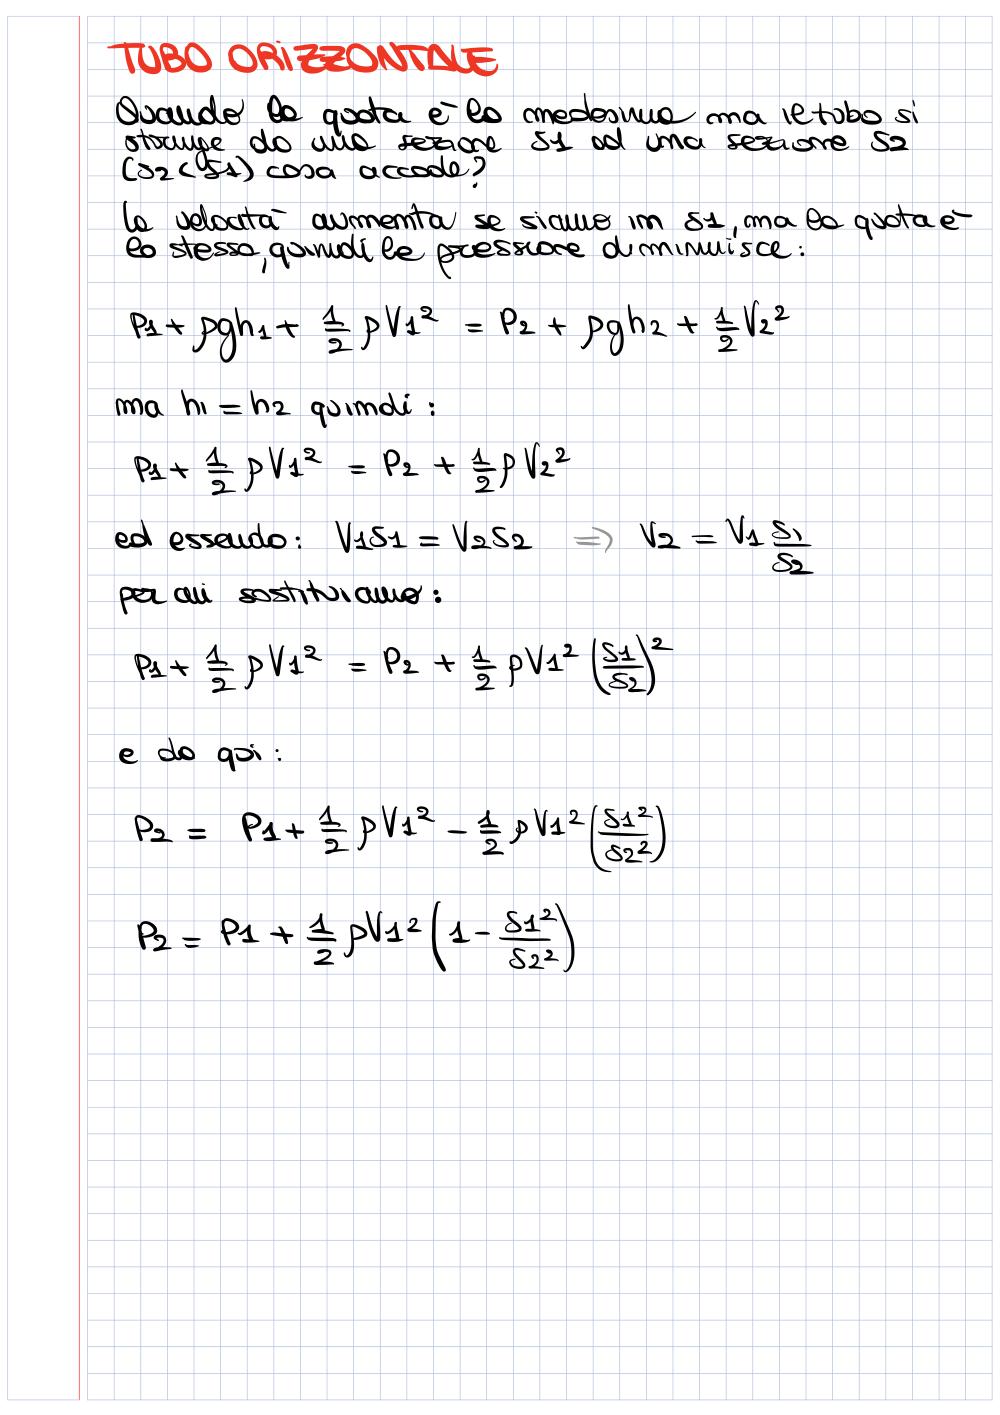 TUBO ORIZZONTALE
Quando la quota è la medesima ma il tubo si
stringe da una sezione S1 ad una sezione S2
(S2 < S1) cosa accade?
la velocità aumenta se siamo in S1, ma la quota è
la stessa, quindi la pressione diminuisce:
P1 + ρgh1 + 1/2 ρV1² = P2 + ρgh2 + 1/2 V2²
ma h1 = h2 quindi:
P1 + 1/2 ρV1² = P2 + 1/2 ρV2²
ed essendo: V1S1 = V2S2 ⇒ V2 = V1 S1/S2
per cui sostituiamo:
P1 + 1/2 ρV1² = P2 + 1/2 ρV1² (S1/S2)²
e da qui:
P2 = P1 + 1/2 ρV1² - 1/2 ρV1² (S1²/S2²)
P2 = P1 + 1/2 ρV1² (1 - S1²/S2²)